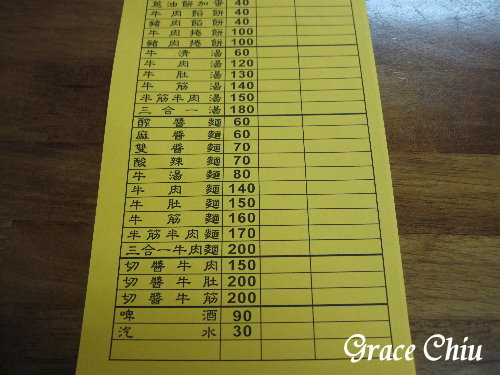 蔥油餅加蛋 40
牛肉餡餅 40
豬肉餡餅 40
牛肉捲餅 100
豬肉捲餅 100
牛清湯 60
牛肉湯 120
牛肚湯 130
牛筋湯 140
半筋半肉湯 150
三合一湯 180
醡醬麵 60
麻醬麵 60
雙醬麵 70
酸辣麵 70
牛湯麵 80
牛肉麵 140
牛肚麵 150
牛筋麵 160
半筋半肉麵 170
三合一牛肉麵 200
切醬牛肉 150
切醬牛肚 200
切醬牛筋 200
啤酒 90
汽水 30
Grace Chiu